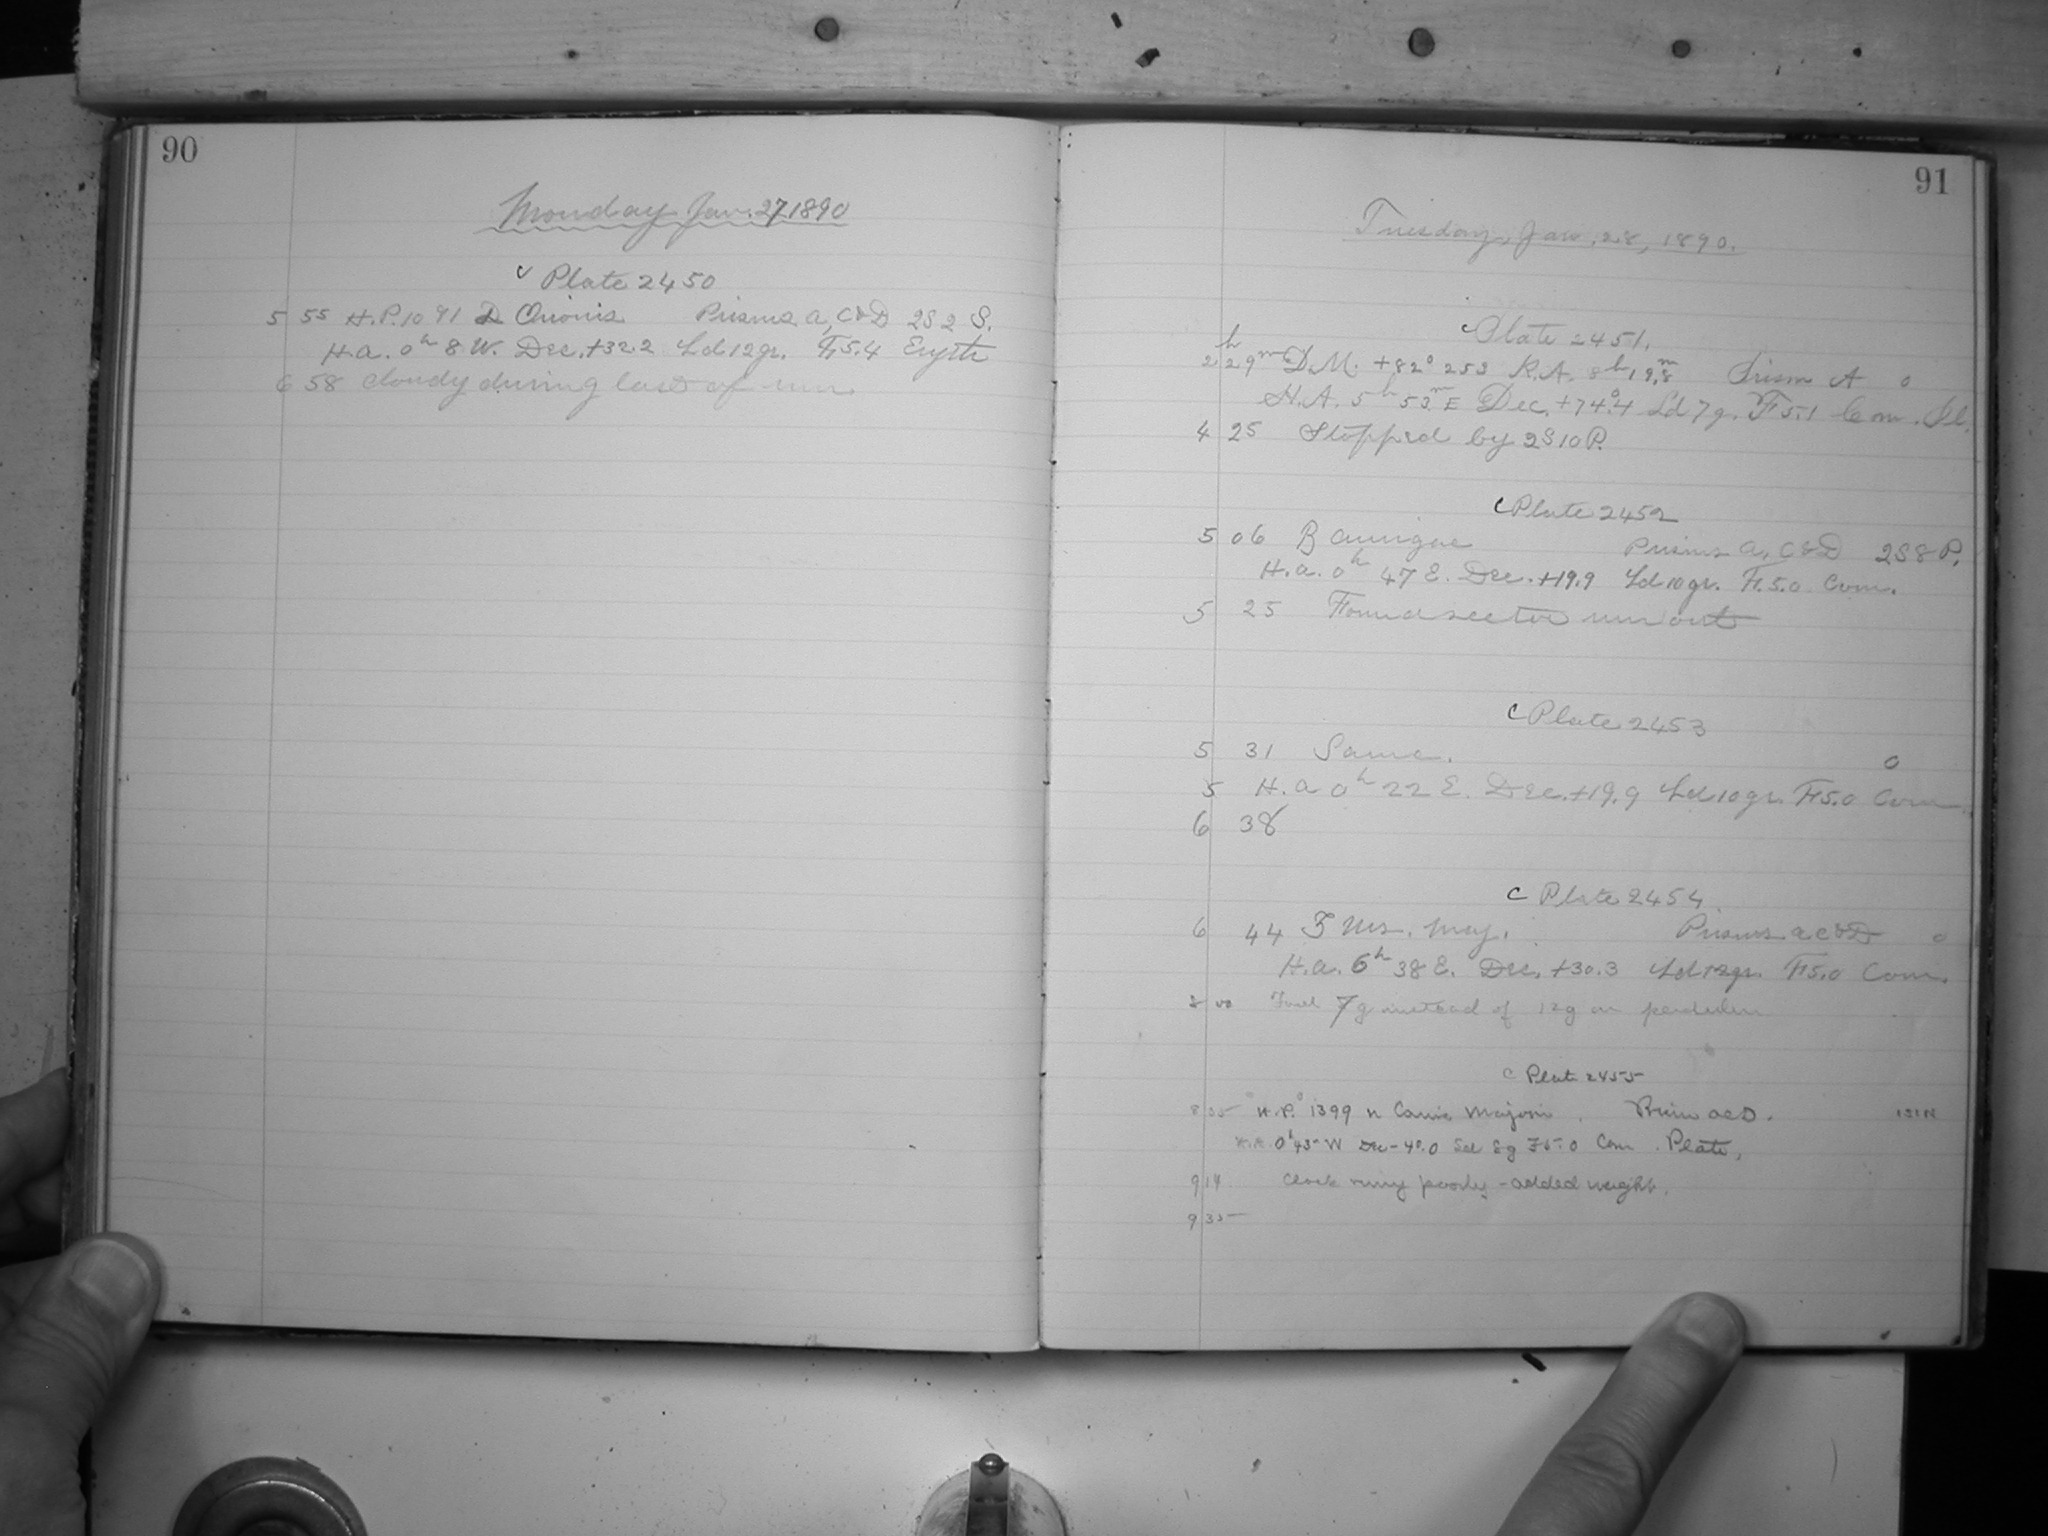 90
Monday Jan. 27 1890
Plate 2450
5 55 H.P. 1091 Orionis Prisms a, C & D 2S 2 S.
H.a. 0h 8 W. Dec. +32.2 Ld 12gr. F.5.4 Eryth
6 58 Cloudy during last of run
91
Tuesday, Jan. 28, 1890.
c Plate 2451.
2h 29m D.M. +82° 253 R.A. 8h 19.8m Prism A 0
H.A. 5h 53m E Dec. +74.°4 Ld 7g. F 5.1 Com. Pl.
4 25 Stopped by 2S 10 P.
c Plate 2452
5 06 B aurigae Prisms a, C & D 2S 8 P.
H.a. 0h 47 E. Dec. +19.9 Ld 10gr. F.5.0 Com.
5 25 Found sector run out
c Plate 2453
5 31 Same. 0
5 H.a 0h 22 E. Dec. +19.9 Ld 10gr. F5.0 Com
6 38
c Plate 2454
6 44 Urs. Maj. Prisms a c & D 0
H.a. 6h 38 E. Dec. +30.3 Ld 12gr. F5.0 Com.
8 00 7g instead of 12g on pendulum
c Plate 2455
8 35 H.P. 1399 n Canis Majoris. Prism a c D. 1S1N
H.A. 0h 45 W Dec - 40.0 Ld 8g F5.0 Com. Plate,
9 14 Clock runing poorly - added weight.
9 35